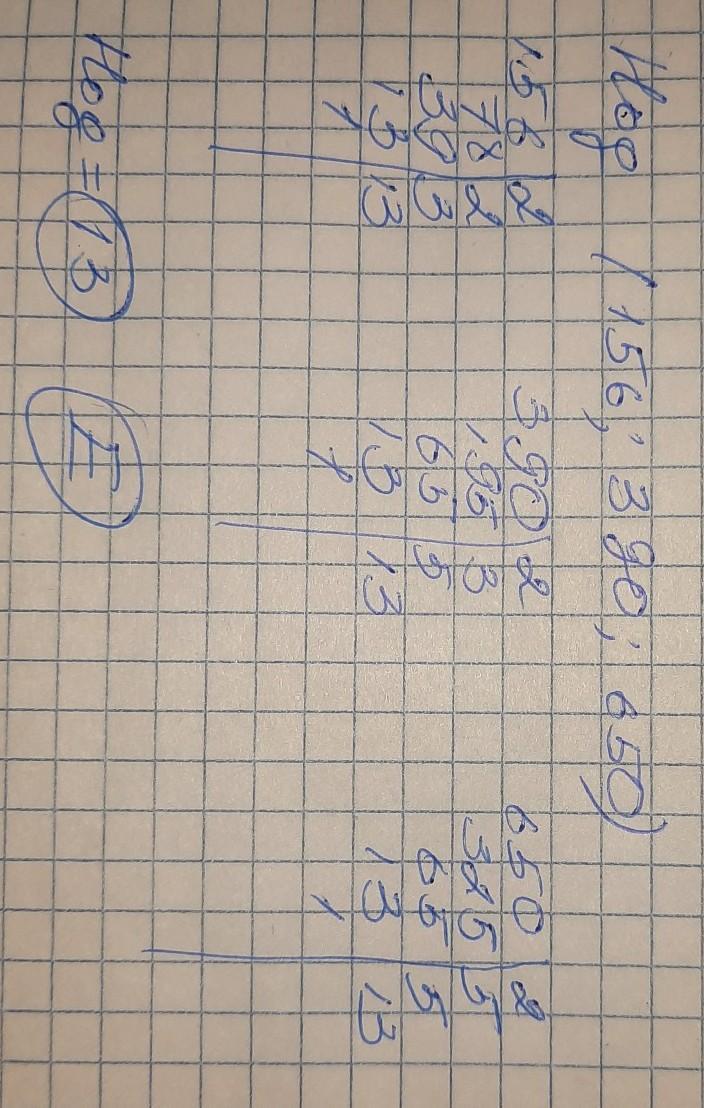 Нод (156; 390; 650)
156 | 2 390 | 2 650 | 2
78 | 2 195 | 3 325 | 5
39 | 3 65 | 5 65 | 5
13 | 13 13 | 13 13 | 13
1 1 1
Нод = 13 II